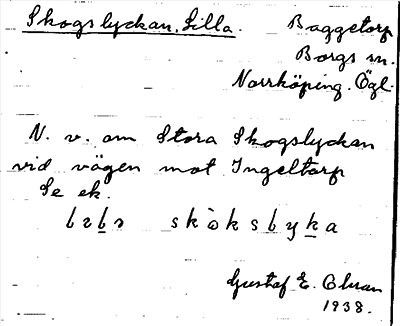 Skogslyckan, Lilla. Baggetorp
Borgs sn.
Norrköping. Ögl.
N. v. om Stora Skogslyckan
vid vägen mot Ingeltorp
Se ek.
skòkslyka
Gustaf E. Ohran
1938.